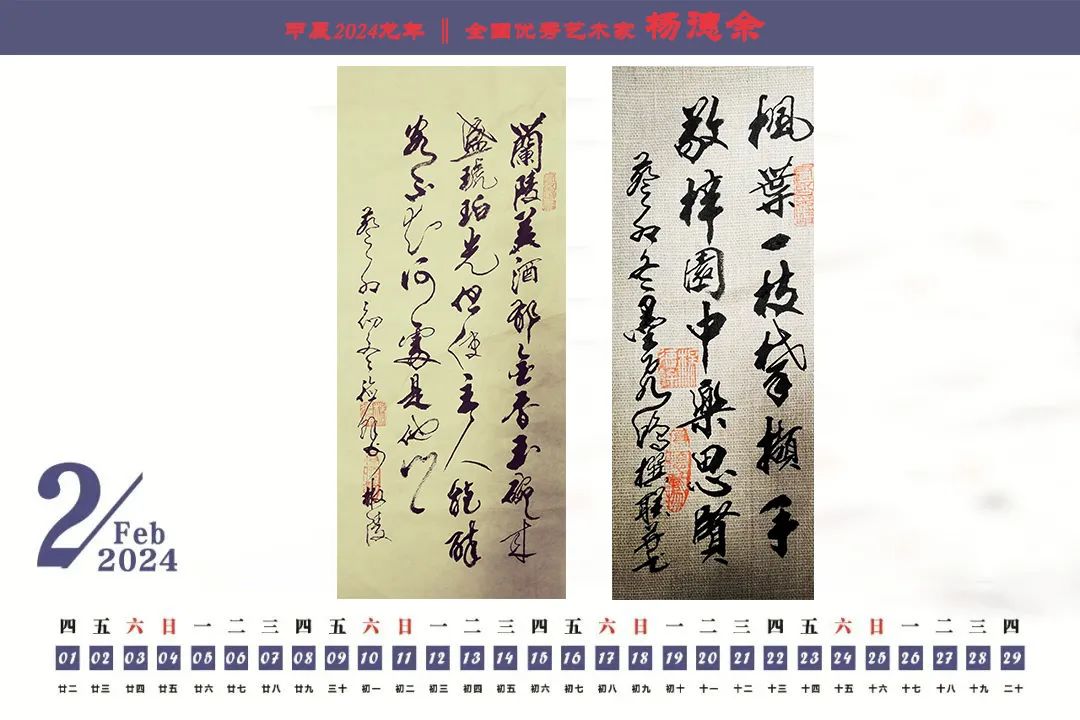 甲辰2024龙年 ‖ 全国优秀艺术家 杨德余
蘭陵美酒郁金香玉碗来
盛琥珀光但使主人能醉
客不知何處是他乡
癸卯初冬
楓葉一枝擷手
敬梓園中樂思賢
癸卯冬墨撰联并书
2/Feb
2024
四 五 六 日 一 二 三 四 五 六 日 一 二 三 四 五 六 日 一 二 三 四 五 六 日 一 二 三 四
01 02 03 04 05 06 07 08 09 10 11 12 13 14 15 16 17 18 19 20 21 22 23 24 25 26 27 28 29
廿二 廿三 廿四 廿五 廿六 廿七 廿八 廿九 三十 初一 初二 初三 初四 初五 初六 初七 初八 初九 初十 十一 十二 十三 十四 十五 十六 十七 十八 十九 二十